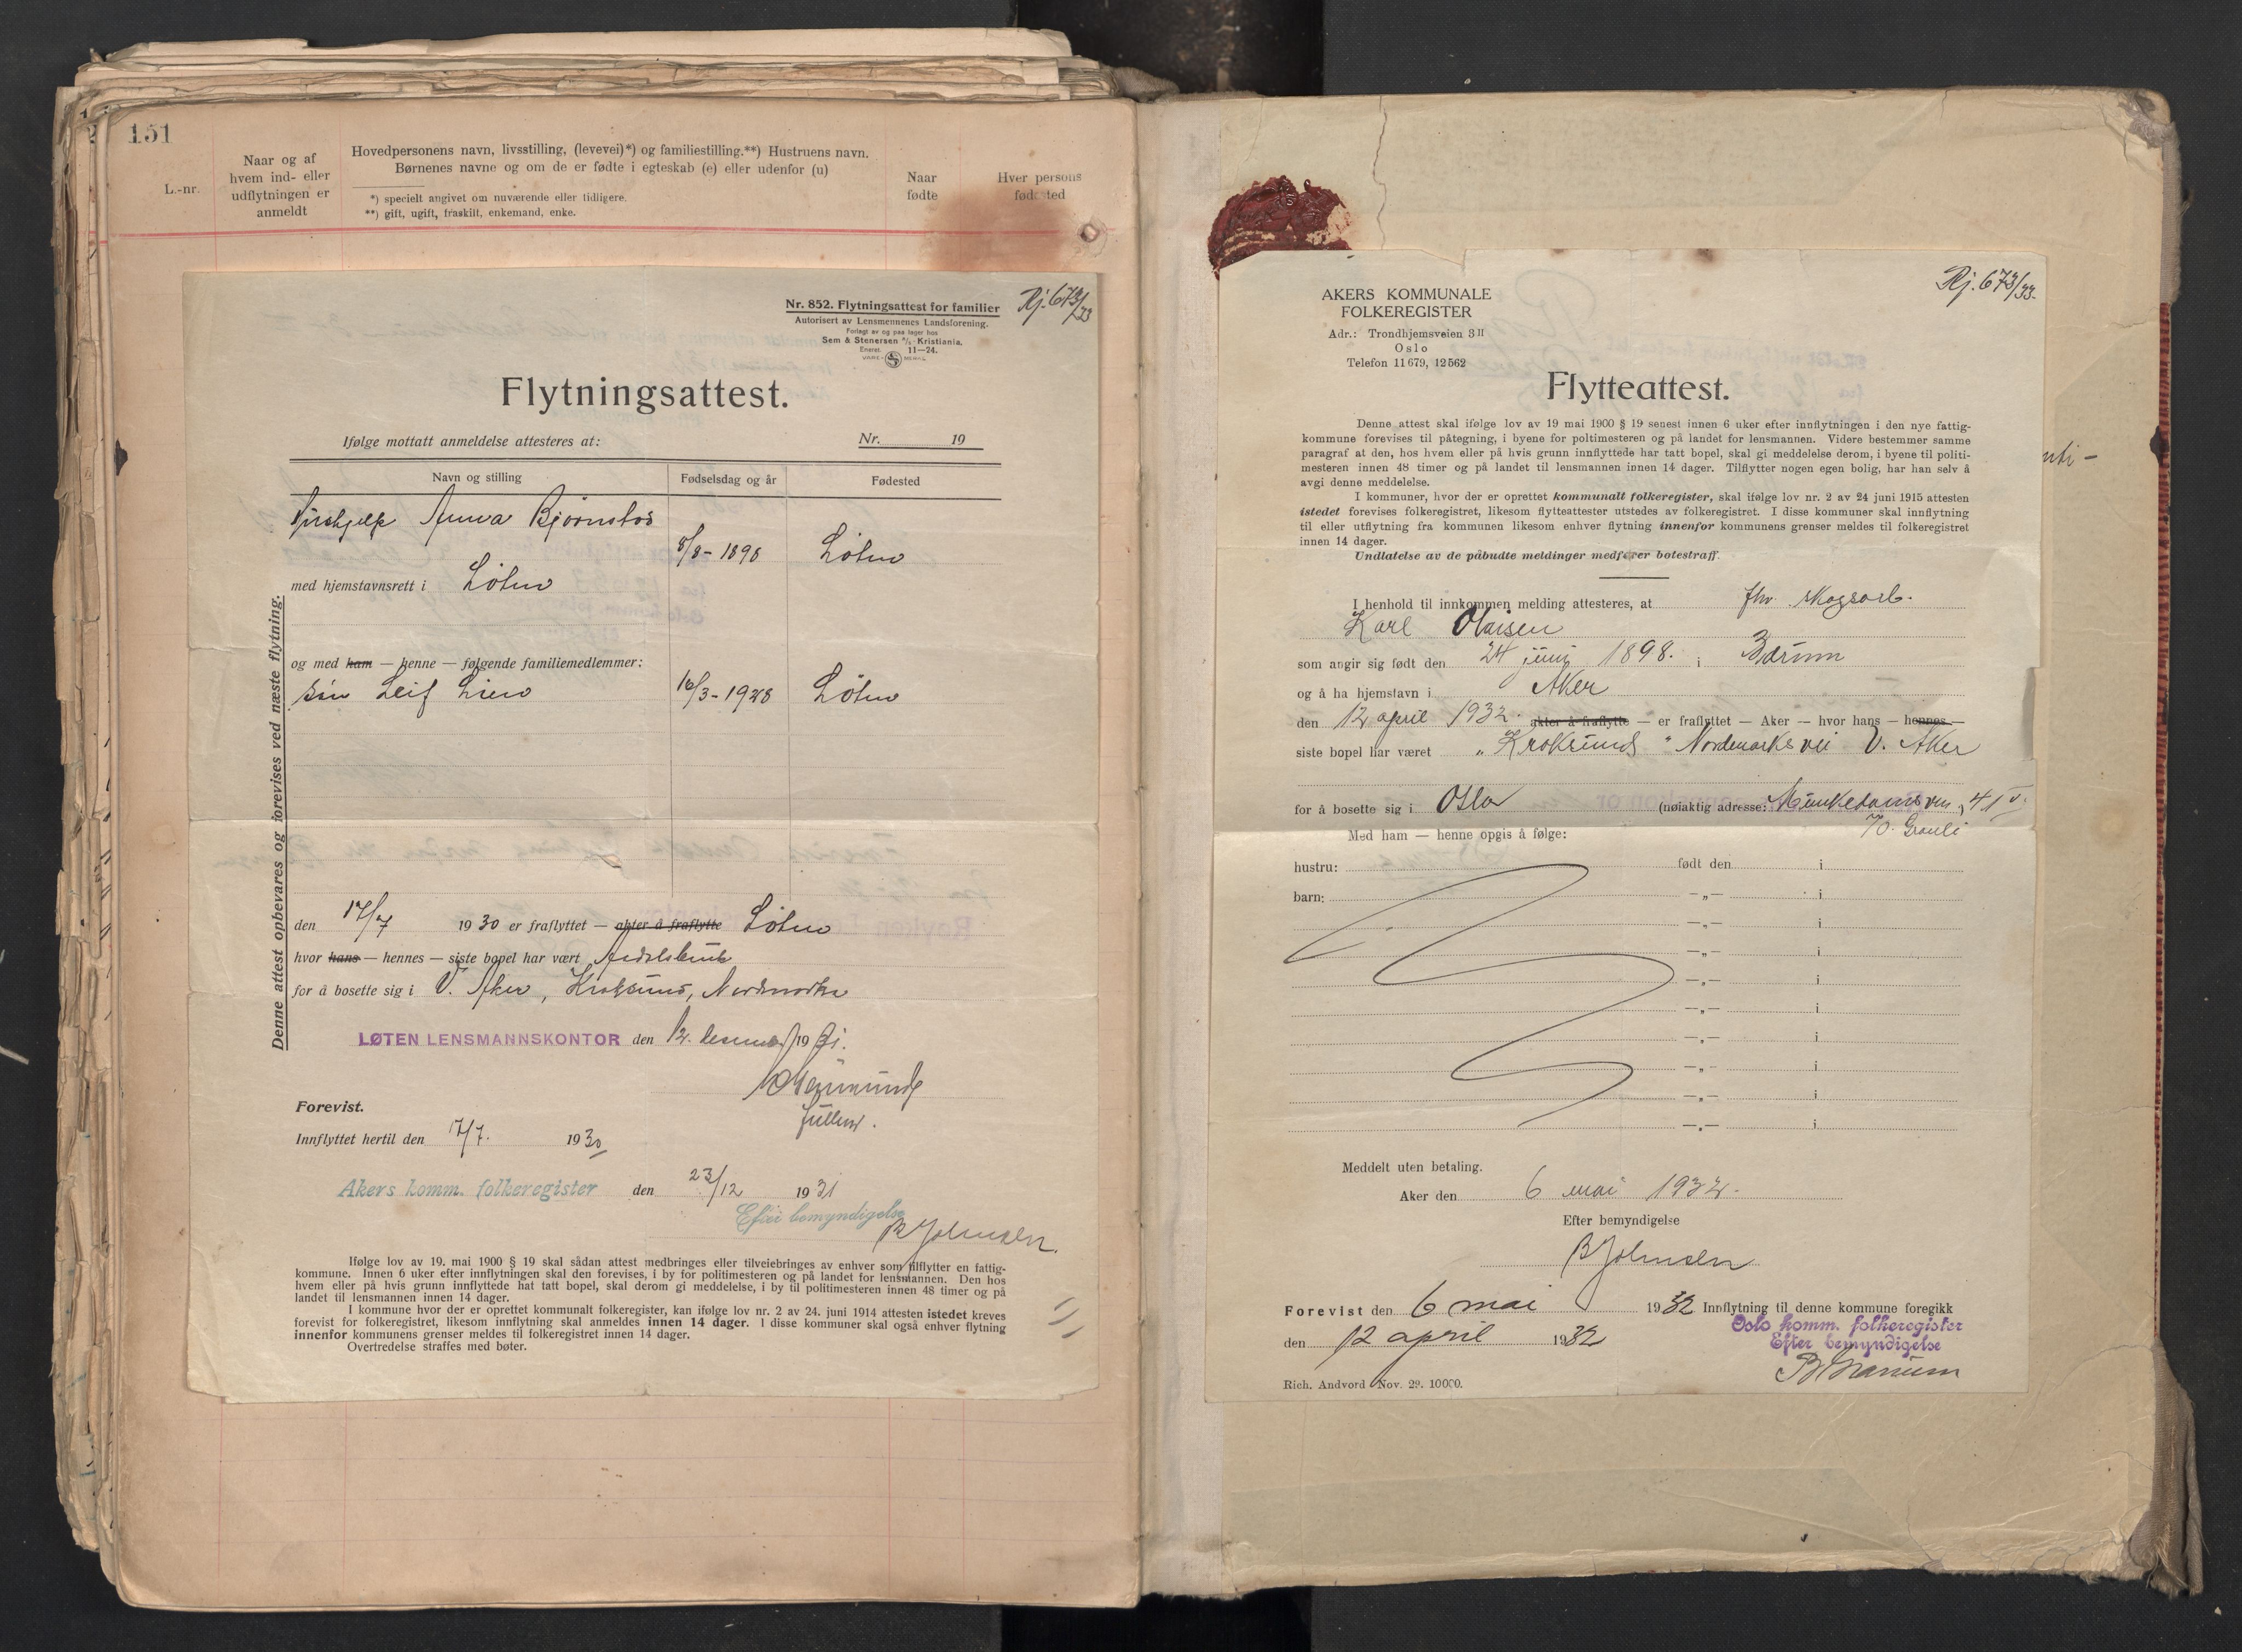 151
L.-nr.
Naar og af
hvem ind- eller
udflytningen er
anmeldt
Hovedpersonens navn, livsstilling, (levevei)*) og familiestilling.**) Hustruens navn.
Børnenes navne og om de er fødte i egteskab (e) eller udenfor (u)
*) specielt angivet om nuværende eller tidligere.
**) gift, ugift, fraskilt, enkemand, enke.
Naar
fødte
Hver persons
fødested
Nr. 852. Flytningsattest for familier
Autorisert av Lensmennenes Landsforening.
Forlagt av og paa lager hos
Sem & Stenersen A/S. Kristiania.
Eneret. 11—24.
VARE- S MERKE
Rj. 673/33
Flytningsattest.
Ifølge mottatt anmeldelse attesteres at:
Nr. 19
Navn og stilling
Fødselsdag og år
Fødested
Anna Bjørnstad
8/8-1898 Løten
med hjemstavnsrett i Løten
og med ham — henne — følgende familiemedlemmer:
søn Leif Lien 16/3-1928 Løten
den 17/7 1930 er fraflyttet — akter å fraflytte Løten
hvor hans — hennes — siste bopel har vært Aadalsbruk
for å bosette sig i V. Aker, Kroksund, Nordmarka
LØTEN LENSMANNSKONTOR den 12. desember 1931.
fullm.
Forevist.
Innflyttet hertil den 17/7. 1930
Akers komm. folkeregister den 23/12 1931
Efter bemyndigelse
B Johnsen.
Denne attest opbevares og forevises ved næste flytning.
Ifølge lov av 19. mai 1900 § 19 skal sådan attest medbringes eller tilveiebringes av enhver som tilflytter en fattig-
kommune. Innen 6 uker efter innflytningen skal den forevises, i by for politimesteren og på landet for lensmannen. Den hos
hvem eller på hvis grunn innflyttede hat tatt bopel, skal derom gi meddelelse, i by til politimesteren innen 48 timer og på
landet til lensmannen innen 14 dager.
I kommune hvor der er oprettet kommunalt folkeregister, kan ifølge lov nr. 2 av 24. juni 1914 attesten istedet kreves
forevist for folkeregistret, likesom innflytning skal anmeldes innen 14 dager. I disse kommuner skal også enhver flytning
innenfor kommunens grenser meldes til folkeregistret innen 14 dager.
Overtredelse straffes med bøter.
AKERS KOMMUNALE
FOLKEREGISTER
Adr.: Trondhjemsveien 3 II
Oslo
Telefon 11679, 12562
Rj. 673/33.
Flytteattest.
Denne attest skal ifølge lov av 19 mai 1900 § 19 senest innen 6 uker efter innflytningen i den nye fattig-
kommune forevises til påtegning, i byene for poltimesteren og på landet for lensmannen. Videre bestemmer samme
paragraf at den, hos hvem eller på hvis grunn innflyttede har tatt bopel, skal gi meddelelse derom, i byene til politi-
mesteren innen 48 timer og på landet til lensmannen innen 14 dager. Tilflytter nogen egen bolig, har han selv å
avgi denne meddelelse.
I kommuner, hvor der er oprettet kommunalt folkeregister, skal ifølge lov nr. 2 av 24 juni 1915 attesten
istedet forevises folkeregistret, likesom flytteattester utstedes av folkeregistret. I disse kommuner skal innflytning
til eller utflytning fra kommunen likesom enhver flytning innenfor kommunens grenser meldes til folkeregistret
innen 14 dager.
Undlatelse av de påbudte meldinger medfører botestraff.
I henhold til innkommen melding attesteres, at fhv skogsarb.
Karl Olaisen
som angir sig født den 24 juni 1898. i Bærum
og å ha hjemstavn i Aker
den 12 april 1932. akter å fraflytte — er fraflyttet — Aker — hvor hans — hennes —
siste bopel har været "Kroksund" Nordmarksvei V. Aker
for å bosette sig i Oslo (nøiaktig adresse: Munkedamsvn. 41 V.
Med ham — henne opgis å følge: % Grauli
hustru: født den i
barn: —„— i
—„— i
—„— i
—„— i
—„— i
—„— i
—„— i
—„— i
—„— i
Meddelt uten betaling.
Aker den 6 mai 1932.
Efter bemyndigelse
B Johnsen
Forevist den 6 mai 1932 Innflytning til denne kommune foregikk
den 12 april 1932
Oslo komm. folkeregister
Efter bemyndigelse
Rich. Andvord Nov. 29. 10000.